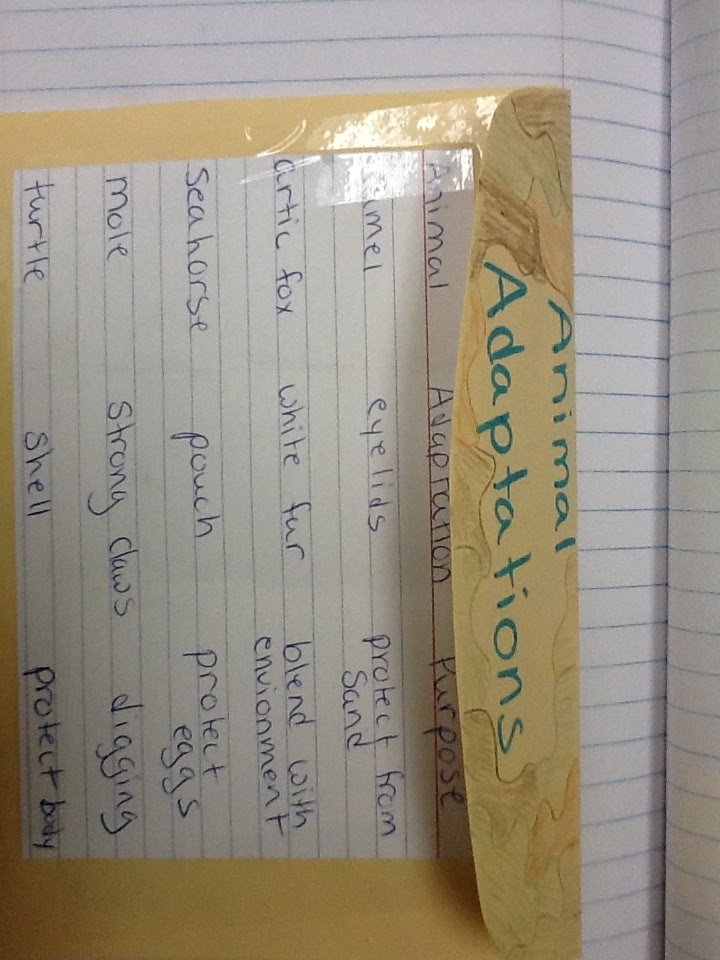 Animal
Adaptations
Animal Adaptation Purpose
camel eyelids protect from
sand
artic fox white fur blend with
envionment
Seahorse pouch protect
eggs
mole strong claws digging
turtle shell protect body